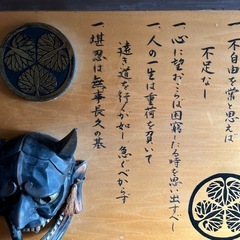 一、不自由を常と思えば
不足なし
一、心に望おこらば困窮したる時を思い出すべし
一、人の一生は重荷を負いて
遠き道を行くが如し 急ぐべからず
一、堪忍は無事長久の基